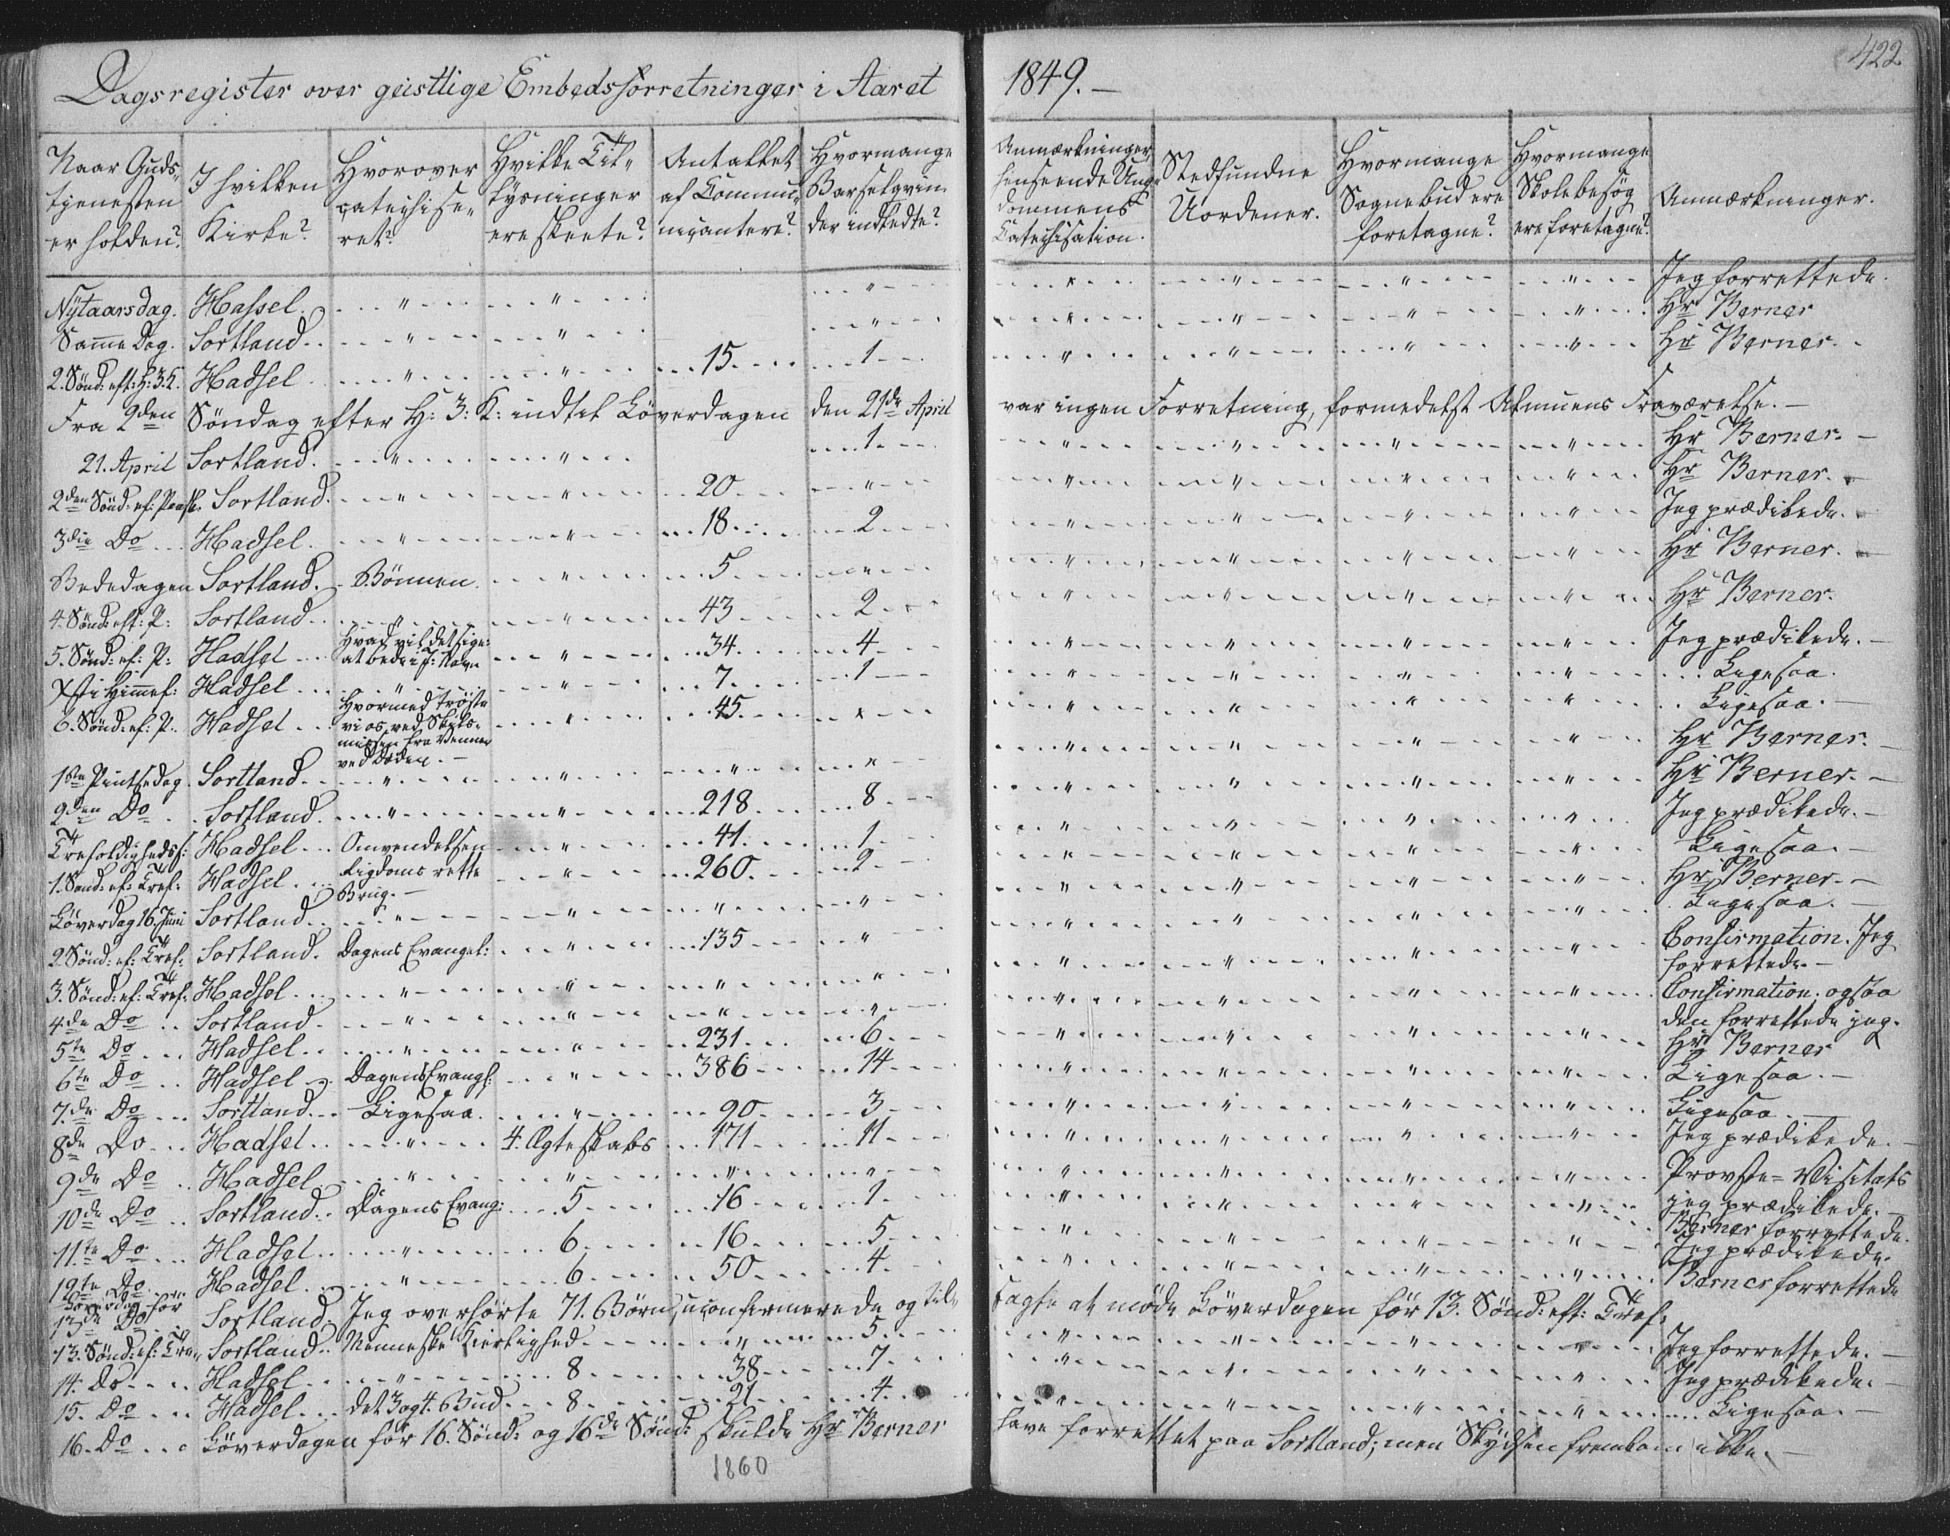 Dagsregister over geistlige Embedsforretninger i Aaret 1849.–
422
Naar Guds-tjenesten er holden? I hvilken Kirke? Hvorover catechiseret? Hvilke Tillysninger ere skeete? Antallet af Communicantere? Hvormange Barselqvinder indledte? Anmærkninger henseende Ungdommens Catechisation. Stedfundne Uordener. Hvormange Sognebud ere foretagne? Hvormange Skolebesøg ere foretagne? Anmærkninger.
Nytaarsdag. Hassel. " " " " " " " Jeg forrettede.
Samme Dag. Sortland. " " " " " " " Hr Berner
2. Sønd: eft: H: 3. K. Hadsel " " 15 1 " " " " Hr Berner.
Fra 2den Søndag efter H: 3: K: indtil Löverdagen den 21de April var ingen Forretning, formedelst Almuens Fraværelse.–
21. April Sortland. " " 1 " " " " Hr Berner.–
2den Sønd: ef: Paask. Sortland. " " 20 " " " " " Hr Berner.
3die Do Hadsel. " " 18 2 " " " " Jeg prædikede.
Bededagen Sortland. Bönnen. " 5 " " " " " Hr Berner.
4. Sønd: eft: P: Sortland. " " 43 2 " " " " Hr Berner.
5. Sønd: ef: P: Hadsel Hvad vil det sige: at bede i J: Navn " 34 4 " " " " Jeg prædikede.–
Xsti Himmef: Hadsel " " 7 1 " " " " Ligesaa.
6. Sønd: ef: P. Hadsel Hvormed trøste vi os ved Skilsmissen fra Venner ved Døden.– " 45 " " " " " Ligesaa.–
1ste Pintsedag Sortland. " " " " " " " " Hr Berner.–
2den Do Sortland. " " 218 8 " " " " Hr Berner.–
Trefoldighedsf: Hadsel Omvendelsen " 41 1 " " " " Jeg prædikede.–
1. Sønd: ef: Tref: Hadsel. Rigdoms rette Brug.– " 260 2 " " " " Ligesaa.–
Löverdag 16 Juni Sortland. " " " " " " " " Hr Berner.–
2. Sønd: ef: Tref: Sortland. Dagens Evangel: " 135 " " " " " Ligesaa.–
3. Sønd: ef: Tref: Hadsel. " " " " " " " " Confirmation. Jeg forrettede.–
4de Do Sortland. " " " " " " " " Confirmation. ogsaa den forrettede jeg.
5te Do Hadsel. " " 231 6 " " " " Hr Berner
6te Do Hadsel Dagens Evangl: " 386 14 " " " " Ligesaa.–
7de Do Sortland. Ligesaa. " 90 3 " " " " Ligesaa.–
8de Do Hadsel. " 4. Ægteskabs 171 11 " " " " Jeg prædikede.–
9de Do Hadsel " " " " " " " " Provste-Visitats jeg prædikede.–
10de Do Sortland. Dagens Evang: 5 16 1 " " " " Berner forrettede.
11te Do Hadsel. " 6 16 5 " " " " Jeg prædikede.
12te Do Hadsel. " 6 50 4 " " " " Berner forrettede
Löverdag før 13de Do Sortland. Jeg overhørte 71. Børn, uconfirmerede og tilsagte at møde Löverdagen før 13. Sønd: eft: Tref:
13. Sønd: ef: Tre. Sortland. Menneske Kierlighed " 5 " " " " Jeg forrettede.–
14. Do Hadsel " 8 38 7 " " " " Jeg prædikede.
15. Do Hadsel. det 3 og 4. Bud 8 21 4 " " " " Ligesaa.–
16. Do Löverdagen før 16. Sønd: og 16de Sønd: skulde Hr Berner have forrettet paa Sortland; men Skydsen fremkom ikke.–
1860